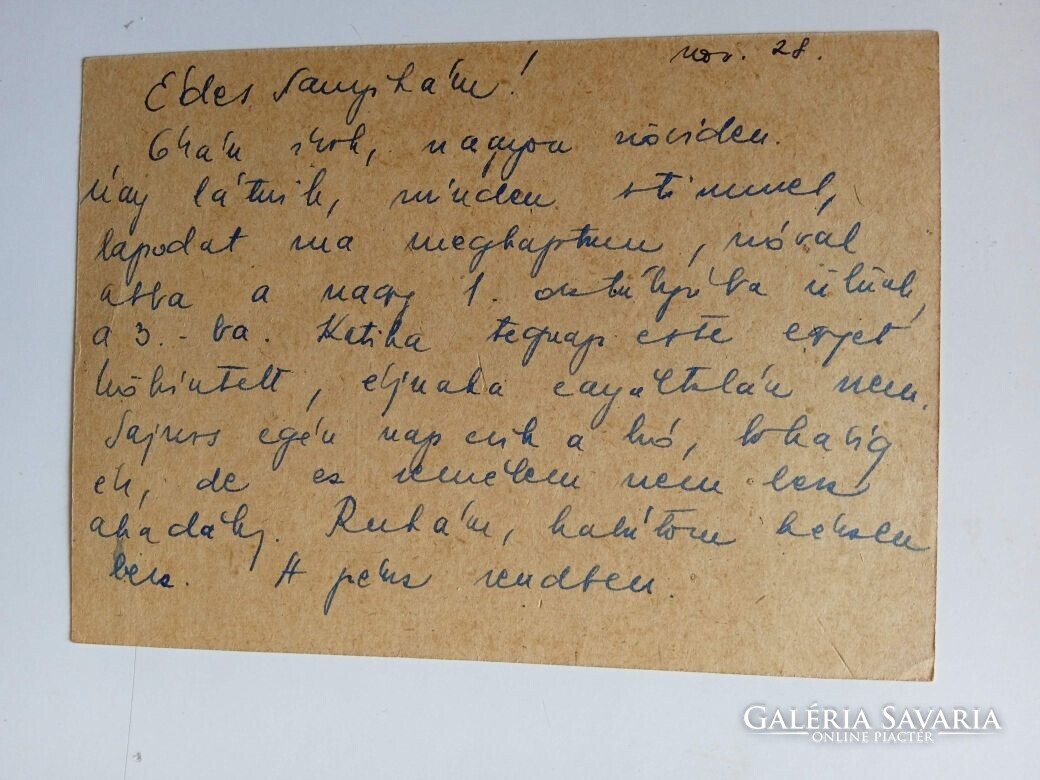 nov. 28.
Édes Sanyikám!
Gkám írok, nagyon röviden.
Úgy látszik, minden stimmel,
lapodat ma megkaptam, szóval
abba a nagy 1. osztályúba ülünk,
a 3.-ba. Katika tegnap este egyet
köhintett, éjszaka egyáltalán nem.
Sajnos egész nap esik a hó, bokáig
ér, de ez remélem nem lesz
akadály. Ruhám, kabátom készen
lesz. A pénz rendben.
GALÉRIA SAVARIA
ONLINE PIACTÉR